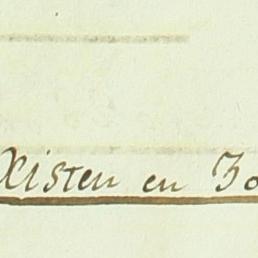 Xisten en Zo